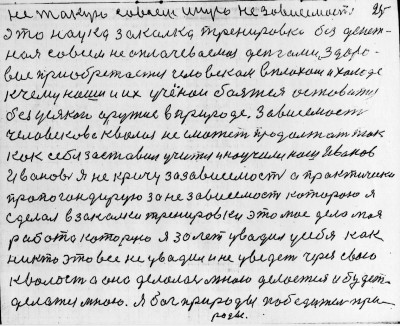 не такую совсем шию независимост: 25
это наука закалка тренировка без денеж-
ная совсем не оплачеваемая денгами. Здоро-
вие приобретается человеком в плохом и холоде
к чему наши и их учёной боятся остоватся
без усякой других в природе. Зависемост
человековс кволая не сможет продолжат так
как себя заставил учится и научися наш Иванов
Иванов Я не кричу за зависемост а практически
пропогандирую за не зависемост которою я
сделал в закалки тренировки это мое дело моя
работа которую Я 30 лет увадил у себя как
никто это все не увадил и не уведет чрез свою
кволост а оно делалос мною делается и будет
делатся мною. Я бог природы победител при-
роды.